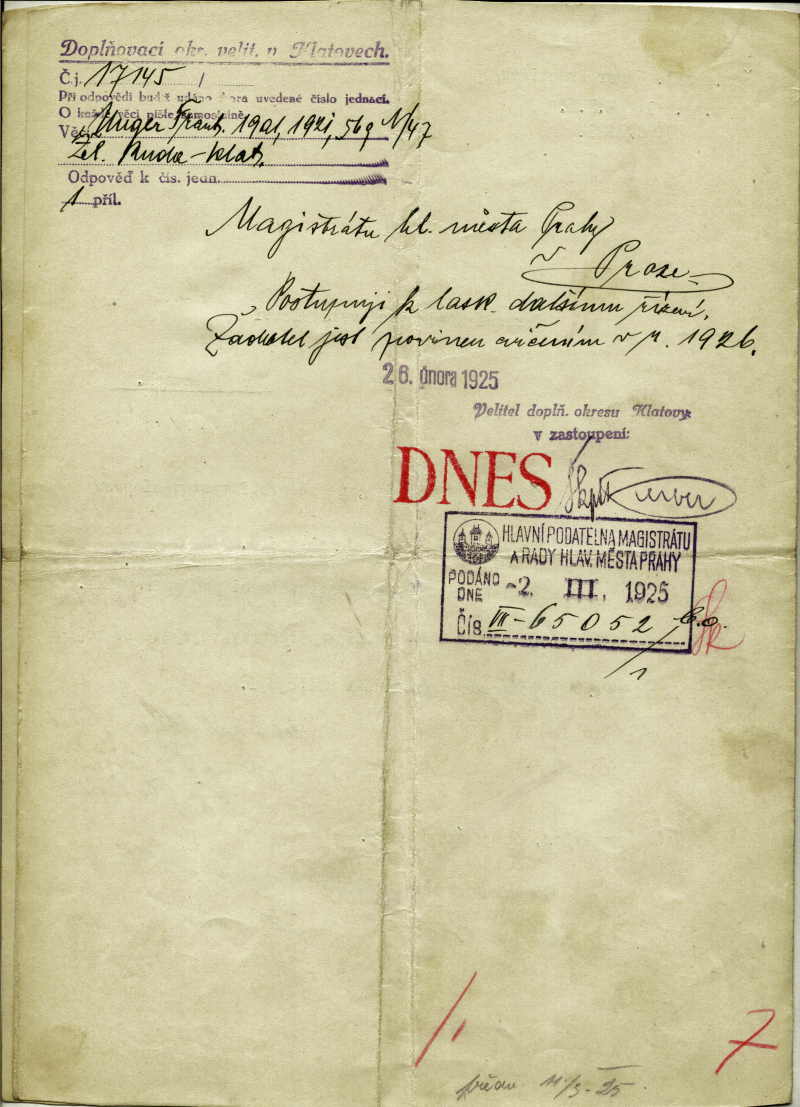 Doplňovací okr. velit. v Klatovech.
Č. j. 17145 /
Při odpovědi budiž udáno shora uvedené číslo jednací.
O každé věci pište samostatně.
Věc: Unger Frant. 1901, 1921,
Žel. Ruda - Klat.
Odpověď k čís. jedn.
1 příl.
Magistrátu hl. města Prahy
v Praze
Postupuji k lask. dalšímu řízení.
Žadatel jest povinen cvičením v r. 1926.
26. února 1925
Velitel doplň. okresu Klatovy:
v zastoupení:
DNES
HLAVNÍ PODATELNA MAGISTRÁTU
A RADY HLAV. MĚSTA PRAHY
PODÁNO
DNE -2. III. 1925
Čís. VII-65052
/1
/1 7
11/3-25